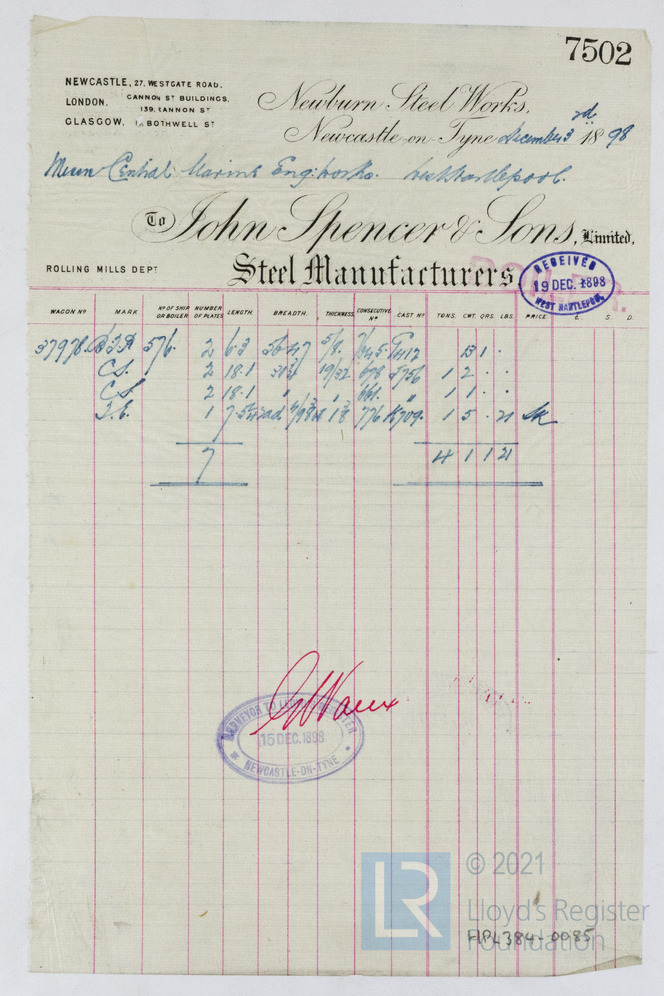 7502
NEWCASTLE, 27, WESTGATE ROAD.
LONDON, CANNON ST BUILDINGS, 139, CANNON ST
GLASGOW, BOTHWELL ST
Newburn Steel Works,
Newcastle-on-Tyne december 3rd 1898
Messrs Central Marine Engworks. West Hartlepool.
To John Spencer & Sons, Limited,
ROLLING MILLS DEPT
Steel Manufacturers
RECEIVED
19 DEC. 1898
WEST HARTLEPOOL
WAGON No MARK No OF SHIP OR BOILER NUMBER OF PLATES LENGTH. BREADTH. THICKNESS CONSECUTIVE No CAST No TONS. CWT. QRS. LBS. PRICE £. S. D.
37978 576 2 6.3 5/8 13 1
C.S. 2 18.1 19/32 678 5756 1 2
C.S. 2 18.1 " 661 " 1 1
1 776 K709 1 5 . 21
7 4 1 1 21
SURVEYOR TO LLOYD'S REGISTER
15 DEC. 1898
NEWCASTLE-ON-TYNE
LR
© 2021
Lloyd's Register
Foundation
HPL384-0085